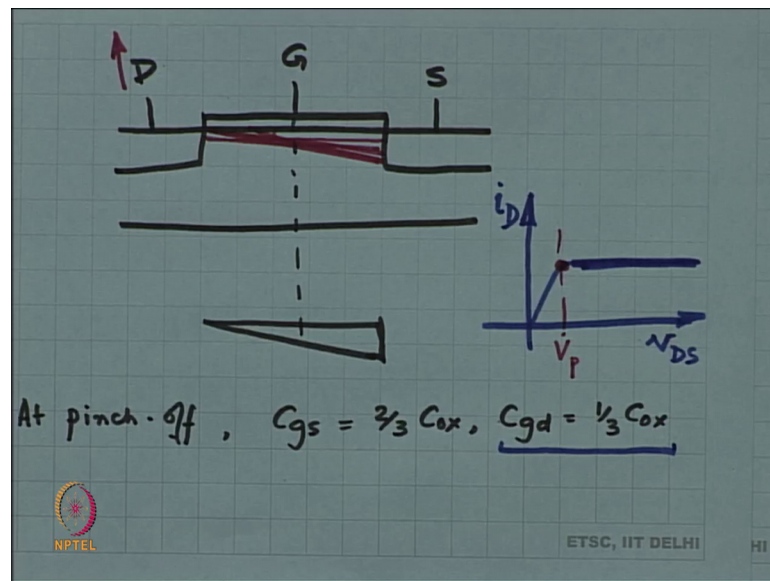 D G S
i_D
V_p
v_DS
At pinch-off, Cgs = 2/3 Cox, Cgd = 1/3 Cox
NPTEL
ETSC, IIT DELHI
HI